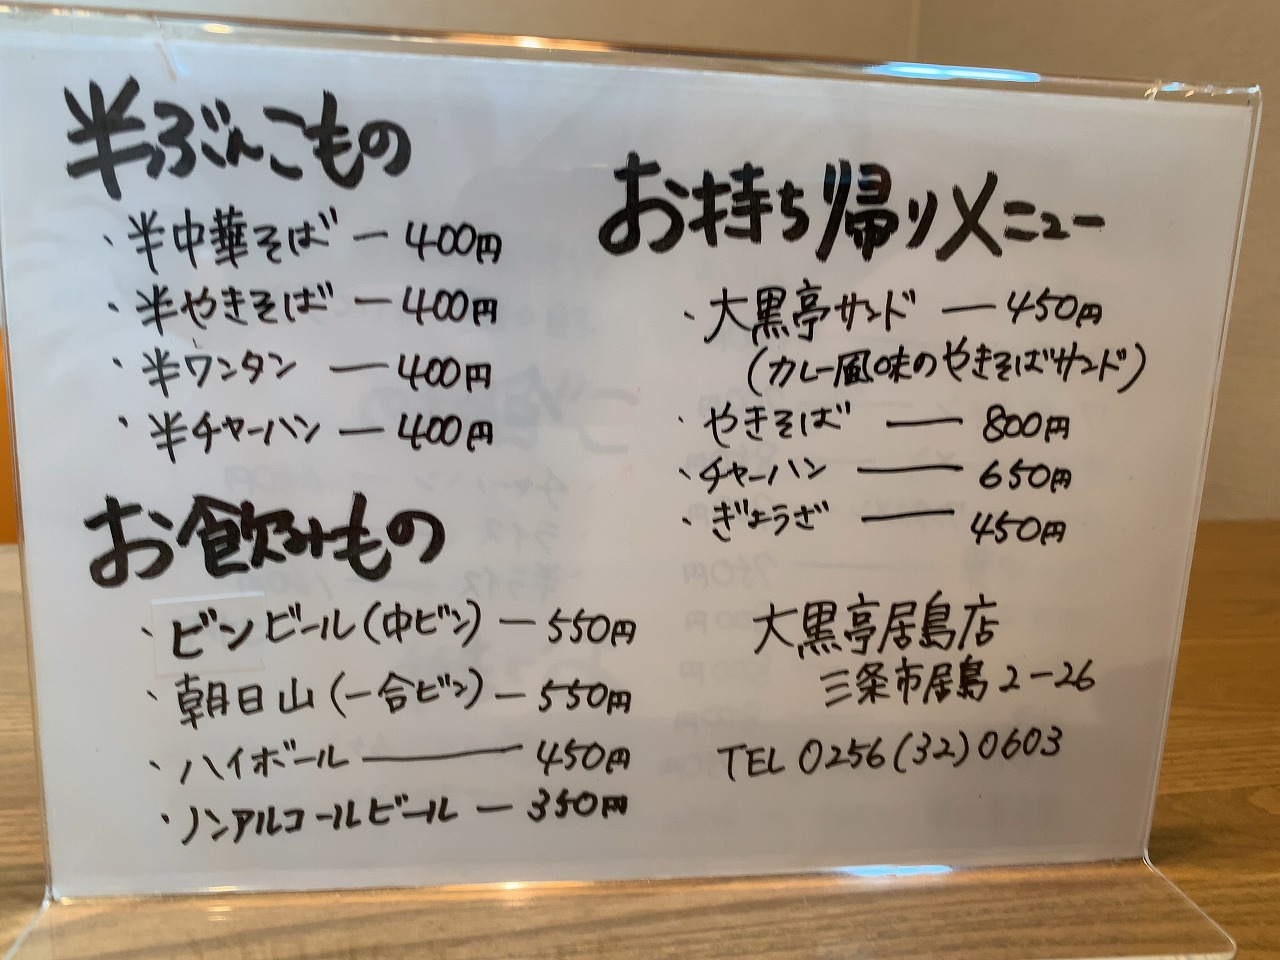 半ぶんこもの
・半中華そば ー 400円
・半やきそば ー 400円
・半ワンタン ー 400円
・半チャーハン ー 400円
お飲みもの
・ビンビール(中ビン) ー 550円
・朝日山(一合ビン) ー 550円
・ハイボール ー 450円
・ノンアルコールビール ー 350円
お持ち帰りメニュー
・大黒亭サンド ー 450円
(カレー風味のやきそばサンド)
・やきそば ー 800円
・チャーハン ー 650円
・ぎょうざ ー 450円
大黒亭居島店
三条市居島2-26
TEL 0256(32)0603